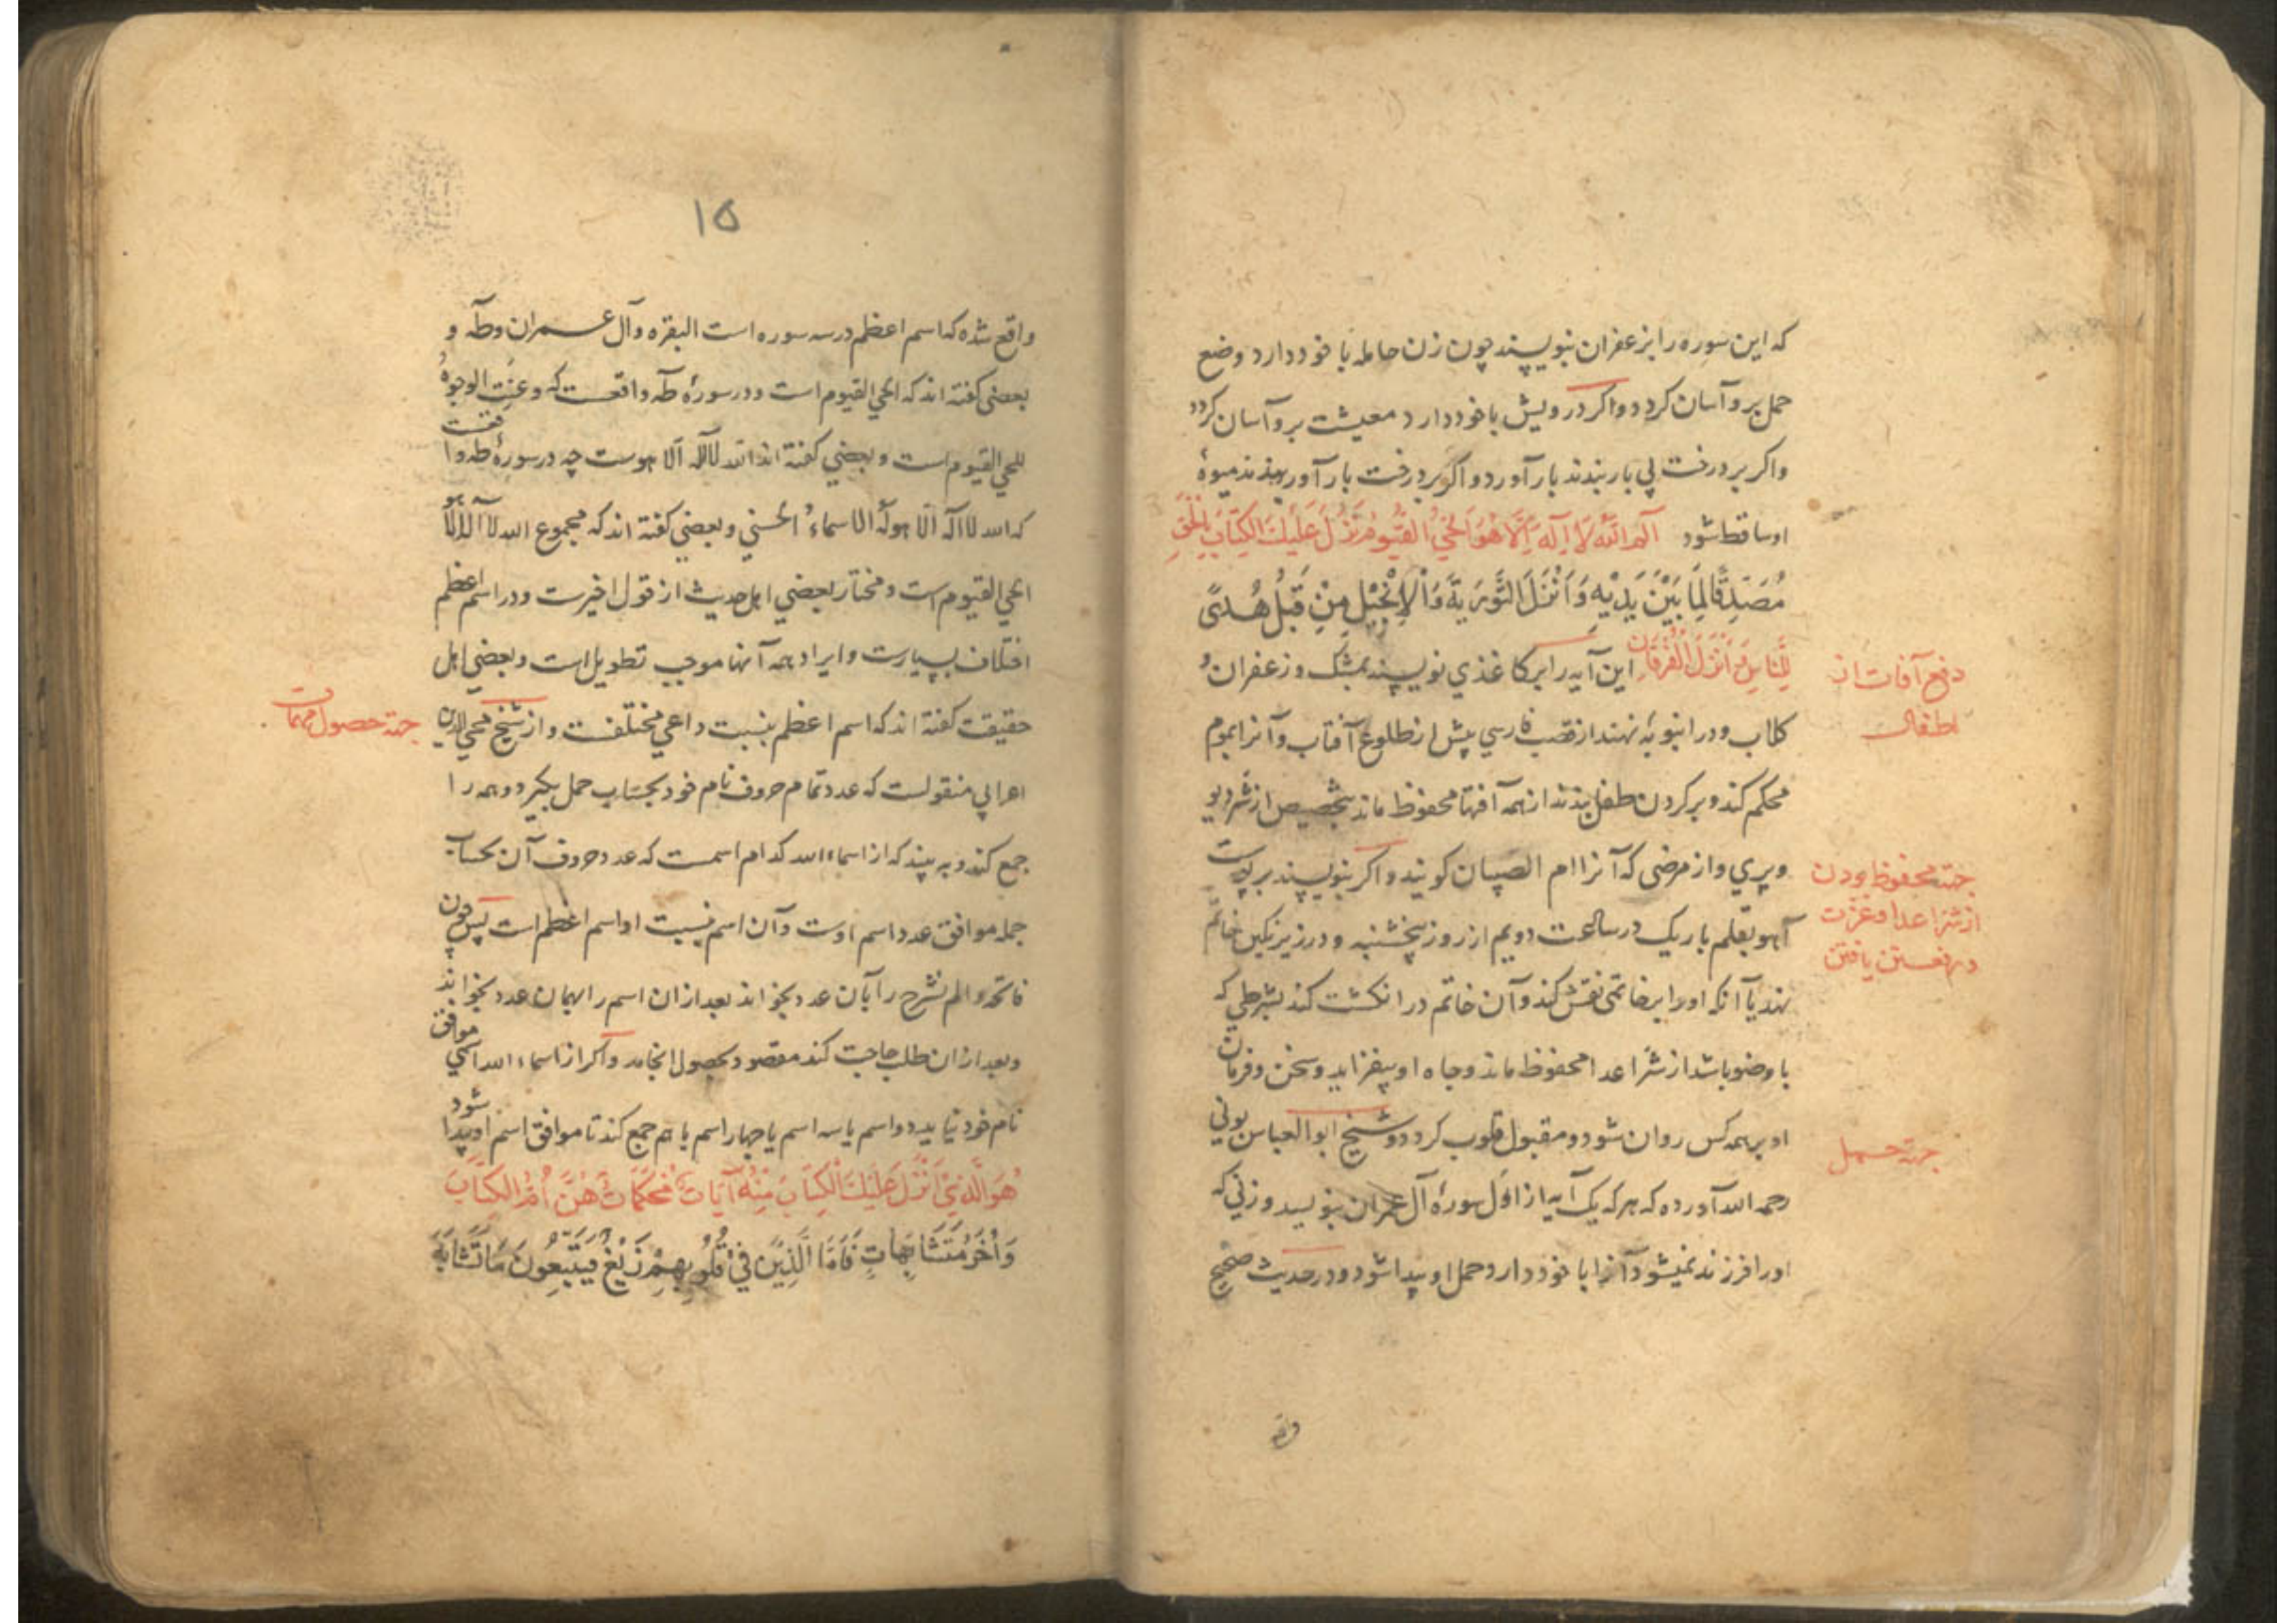 که این سوره را بزعفران بنویسند چون زن حامله با خود دارد وضع
حمل برو آسان کردد واکر درویش با خود دارد معیشت برو آسان کردد
واکر بر درخت بی بار بندند بار آورد واکر بر درخت بار آور بندند میوهٔ
او ساقط شود الم اللَّه لَا اِلَهَ اِلَّا هُوَ الحَيُّ القَيُّومُ نَزَّلَ عَلَيْكَ الكِتَابَ بِالْحَقِّ
مُصَدِّقًا لِمَا بَيْنَ يَدَيْهِ وَاَنْزَلَ التَّوْرَيةَ وَالْاِنْجِيْلَ مِنْ قَبْلُ هُدًى
لِلنَّاسِ وَ اَنْزَلَ الْفُرْقَانَ این آیه را بر کاغذی نویسند بمشک و زعفران و
دفع آفات از
اطفال
کلاب ودر انبوبه نهند از قصب فارسی پیش از طلوع آفتاب وآنرا بموم
محکم کند وبر کردن طفل بندند از همه آفتها محفوظ ماند بتخصیص از شر دیو
وپری واز مرضی که آنرا ام الصبیان کویند واکر بنویسند بر پوست
جهة محفوظ بودن
از شر اعدا وعزت
ورفعت یافتن
آهو بقلم باریک در ساعت دویم از روز پنجشنبه ودر زیر نکین خاتم
نهند یا آنکه او را بر خاتمی نقش کند وآن خاتم در انکشت کند بشرطی که
با وضو باشد از شر اعدا محفوظ ماند وجاه او بیفزاید وسخن وفرمان
او بر همه کس روان شود ومقبول قلوب کردد وشیخ ابو العباس بونی
جهة حمل
رحمه الله آورده که هر که یک آیه از اول سورهٔ آل عمران بنویسد وزنی که
اورا فرزند نمیشود آنرا با خود دارد حمل او پیدا شود ودر حدیث صحیح
واقع
١٥
واقع شده که اسم اعظم در سه سوره است البقره وآل عمران وطه و
بعضی کفته اند که الحي القیوم است ودر سورهٔ طه واقعست که وعنت الوجوهُ
للحي القیوم است وبعضي کفته اند الله لا اله الا هوست چه در سورهٔ طه واقعست
که الله لا اله الا هو له الاسماءُ الحسني وبعضي کفته اند که مجموع الله لا اله الا هو
الحي القیوم است ومختار بعضي اهل حدیث از قول اخیرست ودر اسم اعظم
اختلاف بسیارست وایراد همه آنها موجب تطویل است وبعضي اهل
حقیقت کفته اند که اسم اعظم بنسبت داعي مختلفست واز شیخ محي الدین
جهة حصول مهمات
اعرابي منقولست که عدد تمام حروف نام خود بحساب جمل بکیرد وهمه را
جمع کند وبه بیند که از اسماء الله کدام اسمست که عدد حروف آن بحساب
جمله موافق عدد اسم اوست وآن اسم بنسبت او اسم اعظم است پس چون
فاتحه والم نشرح را بآن عدد بخواند بعد ازان اسم را بهمان عدد بخواند
وبعد ازان طلب حاجت کند مقصود بحصول انجامد واکر از اسماء الله اسمي موافق
نام خود نیابد دو اسم یا سه اسم یا چهار اسم با هم جمع کند تا موافق اسم او پیدا شود
هُوَ الَّذِيْ اَنْزَلَ عَلَيْكَ الْكِتَابَ مِنْهُ آيَاتٌ مُحْكَمَاتٌ هُنَّ اُمُّ الْكِتَابِ
وَاُخَرُ مُتَشَابِهَاتٌ فَاَمَّا الَّذِيْنَ فِيْ قُلُوبِهِمْ زَيْغٌ فَيَتَّبِعُونَ مَا تَشَابَهَ